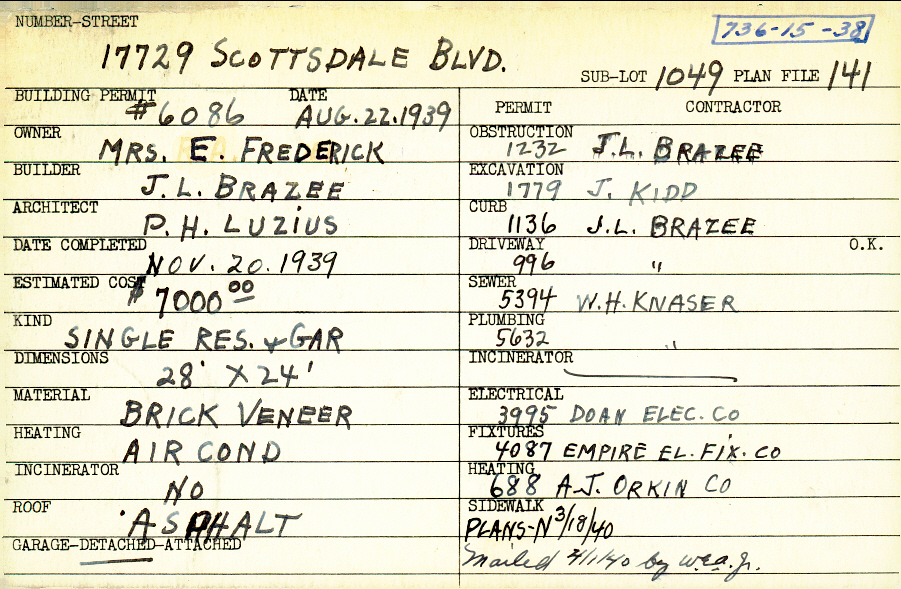 NUMBER-STREET
736-15-38
17729 SCOTTSDALE BLVD.
SUB-LOT 1049 PLAN FILE 141
BUILDING PERMIT DATE
#6086 AUG.22.1939
OWNER
MRS. E. FREDERICK
BUILDER
J.L. BRAZEE
ARCHITECT
P.H. LUZIUS
DATE COMPLETED
NOV. 20. 1939
ESTIMATED COST
$7000 00
KIND
SINGLE RES. & GAR
DIMENSIONS
28' X 24'
MATERIAL
BRICK VENEER
HEATING
AIR COND
INCINERATOR
NO
ROOF
ASPHALT
GARAGE-DETACHED-ATTACHED
PERMIT CONTRACTOR
OBSTRUCTION
1232 J.L. BRAZEE
EXCAVATION
1779 J. KIDD
CURB
1136 J.L. BRAZEE
DRIVEWAY O.K.
996 "
SEWER
5394 W.H. KNASER
PLUMBING
5632 "
INCINERATOR
ELECTRICAL
3995 DOAN ELEC. CO
FIXTURES
4087 EMPIRE EL. FIX. CO
HEATING
688 A.J. ORKIN CO
SIDEWALK
PLANS-N 3/18/40
Mailed 4/1/40 by W.E.A. Jr.